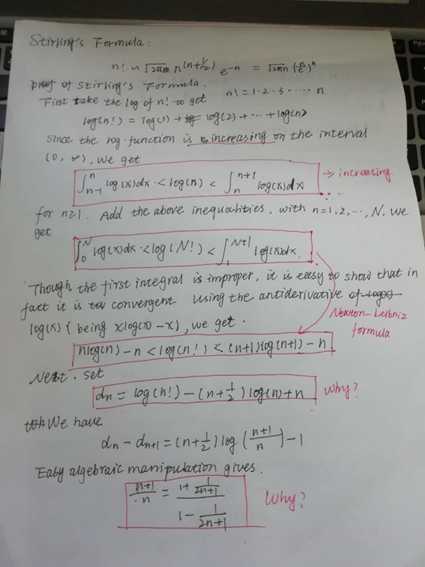 Stirling's Formula:
n! ~ √2πn n^(n+1/2) e^-n = √2πn (n/e)^n
Proof of Stirling's Formula.
First take the log of n! to get n! = 1·2·3·····n
log(n!) = log(1) + log(2) + ··· + log(n)
Since the log function is increasing on the interval
(0, ∞), we get
∫_{n-1}^{n} log(x)dx < log(n) < ∫_{n}^{n+1} log(x)dx → increasing
for n≥1. Add the above inequalities, with n=1,2,···, N. we
get
∫_0^N log(x)dx < log(N!) < ∫_1^{N+1} log(x)dx.
Though the first integral is improper, it is easy to show that in
fact it is convergent Using the antiderivative of log(x)
log(x) ( being xlog(x) - x), we get. Newton-Leibniz
formula
nlog(n) - n < log(n!) < (n+1)log(n+1) - n
Next. set
dn = log(n!) - (n+1/2)log(n) + n Why?
We have
dn - dn+1 = (n+1/2) log (n+1/n) - 1
Easy algebraic manipulation gives.
n+1/n = (1 + 1/2n+1)/(1 - 1/2n+1) Why?